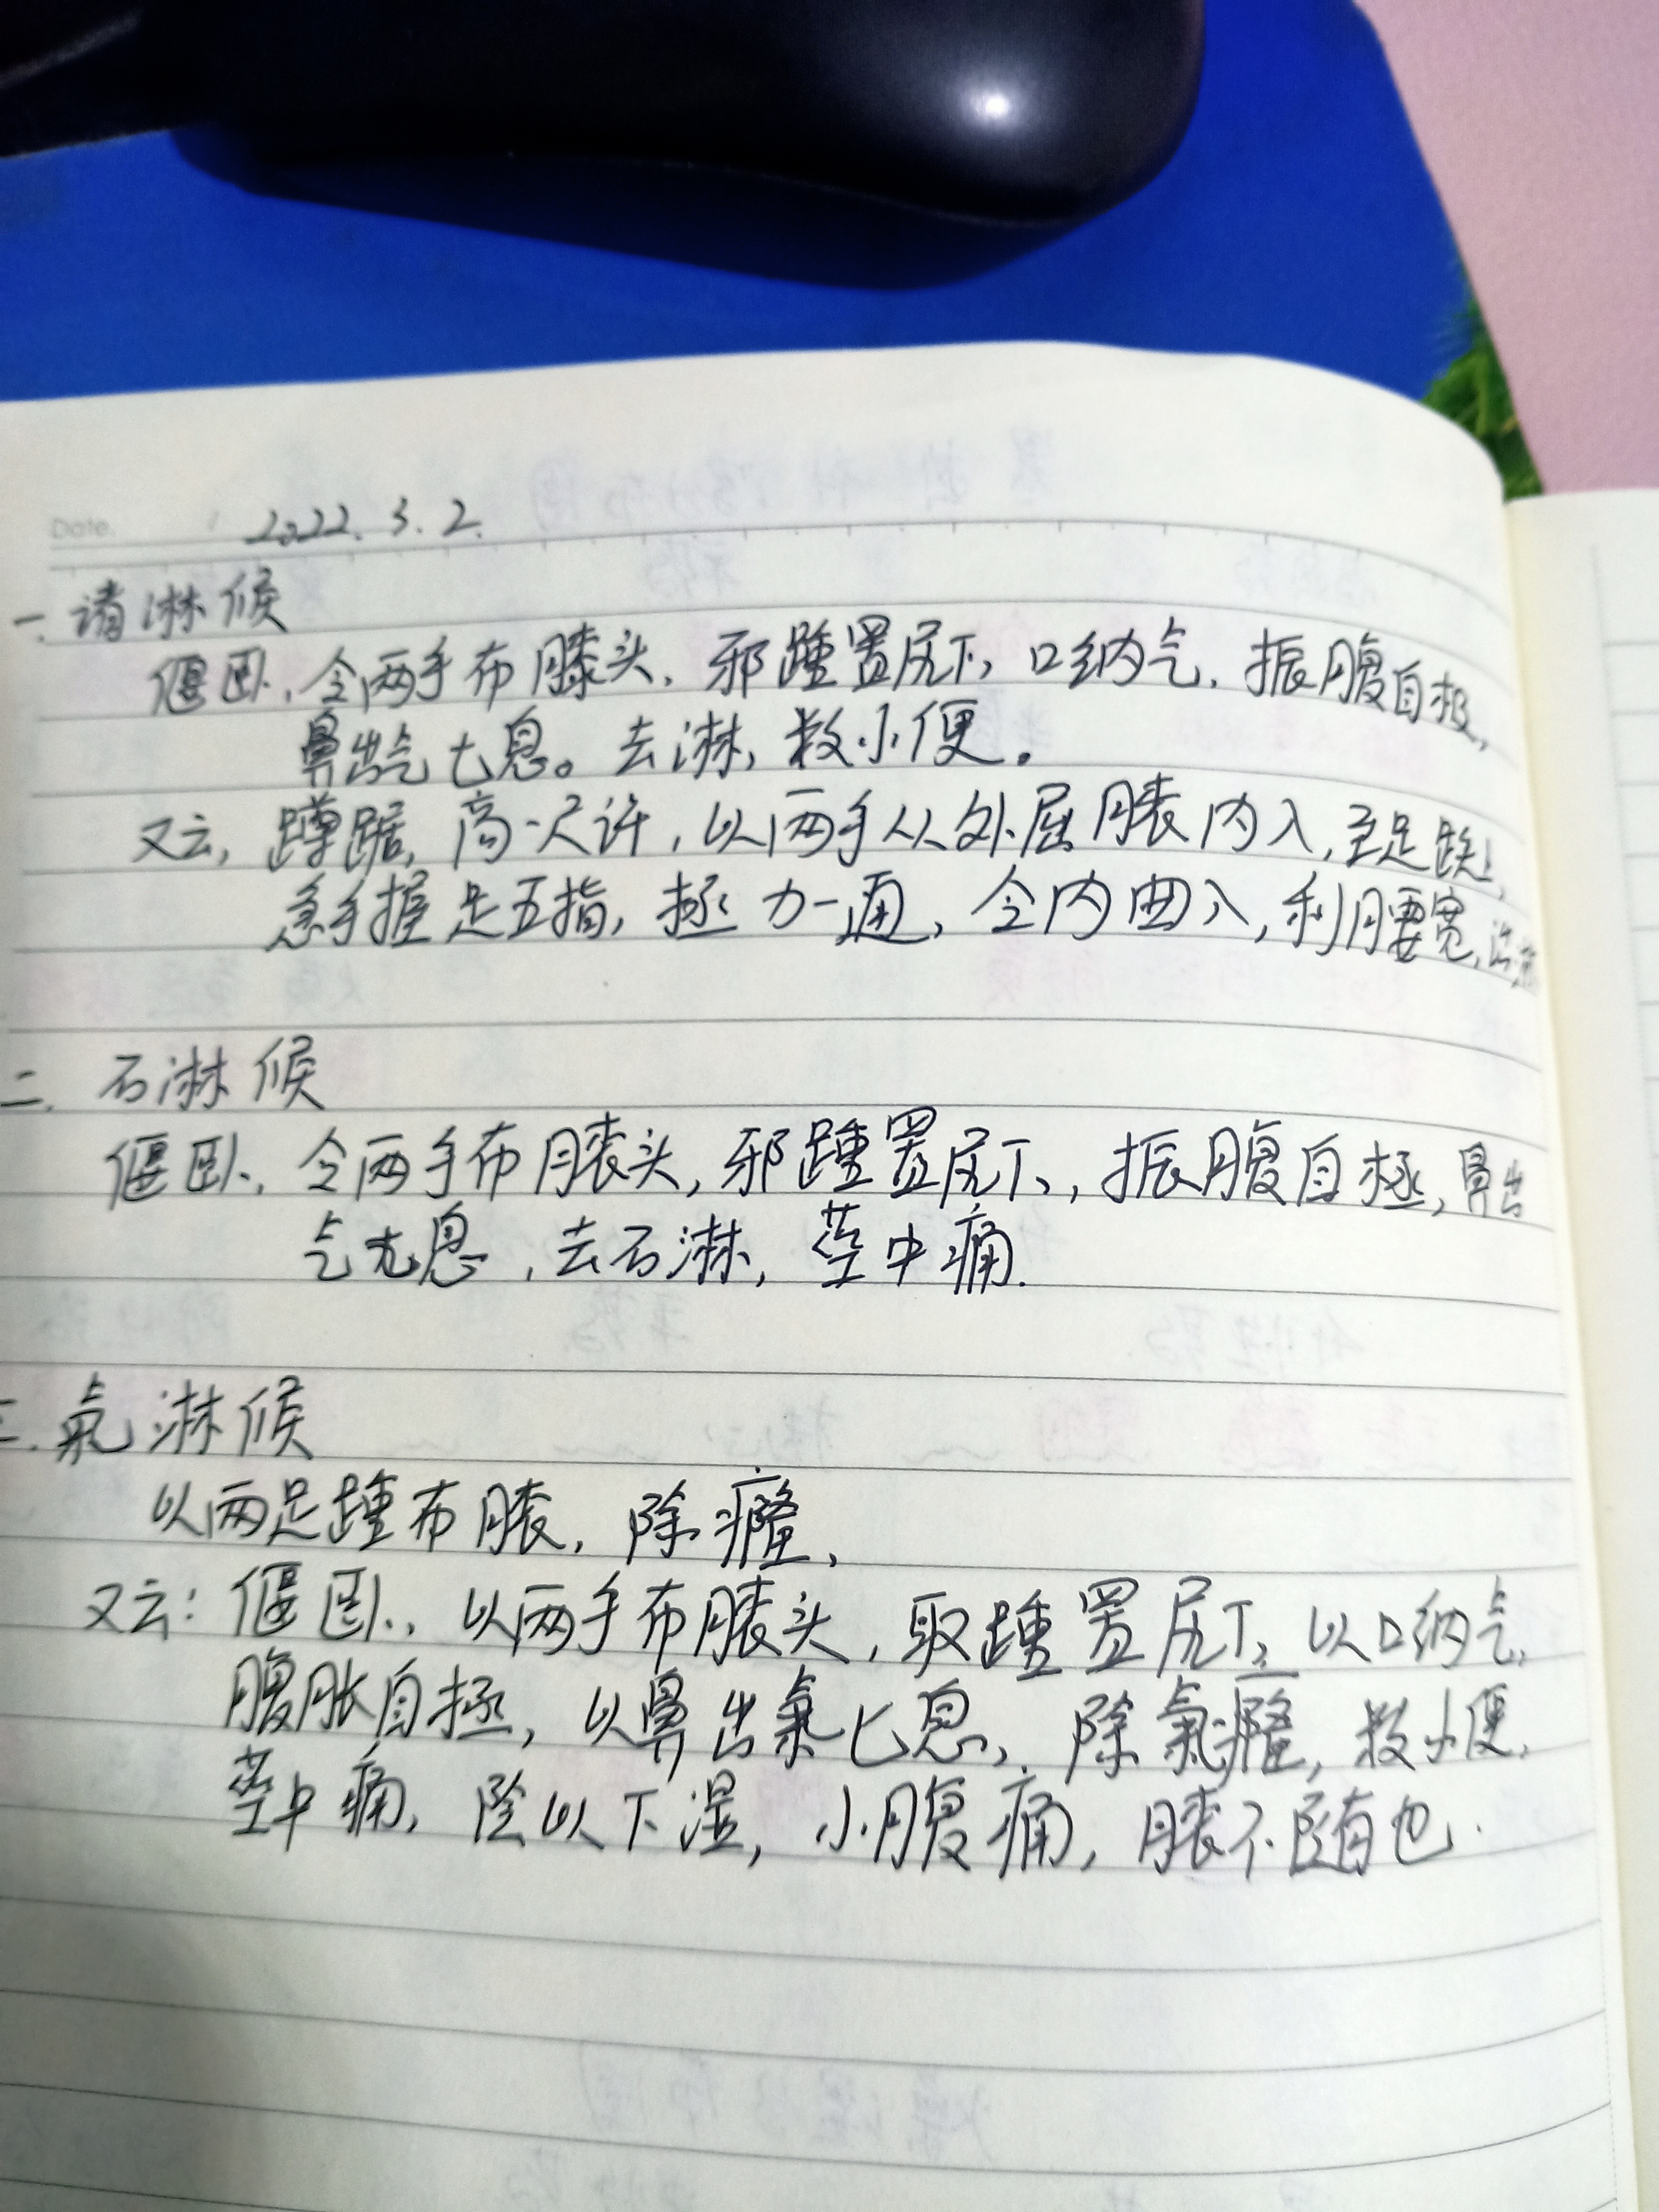 Date. 2022.3.2.
一. 诸淋候
偃卧, 令两手布膝头, 邪踵置尻下, 口纳气, 振腹自极,
鼻出气七息。去淋, 数小便.
又云, 蹲踞, 高一尺许, 以两手从外屈膝内入, 至足趺上,
急手握足五指, 极力一通, 令内曲入, 利腰宽,
二. 石淋候
偃卧, 令两手布膝头, 邪踵置尻下, 振腹自极, 鼻出
气 息, 去石淋, 茎中痛.
三. 氣淋候
以两足踵布膝, 除癃,
又云: 偃卧, 以两手布膝头, 取踵置尻下, 以口纳气,
腹胀自极, 以鼻出氣七息, 除氣癃, 数小便,
茎中痛, 阴以下湿, 小腹痛, 膝不随也.